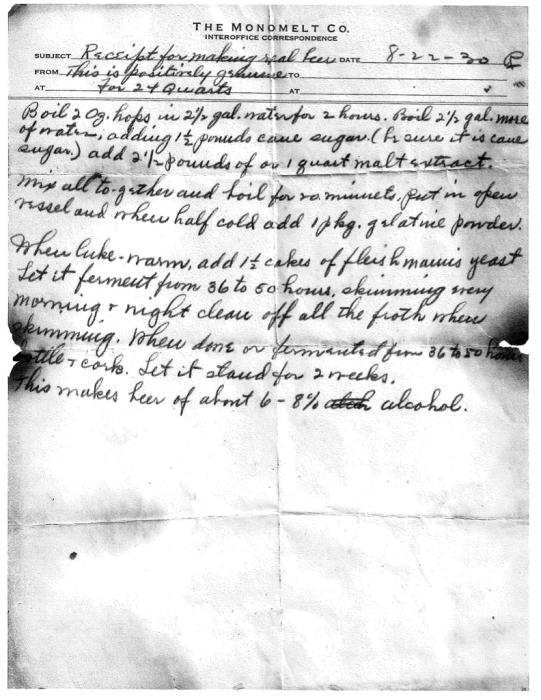 THE MONOMELT CO.
INTEROFFICE CORRESPONDENCE
SUBJECT Receipt for making real beer DATE 8-22-30
FROM This is positively genuine TO
AT For 24 Quarts AT
Boil 2 Oz. hops in 2½ gal. water for 2 hours. Boil 2½ gal. more
of water, adding 1½ pounds cane sugar. (be sure it is cane
sugar.) add 2½ pounds of or 1 quart malt extract.
Mix all to-gether and boil for 20 minuets. Put in open
vessel and when half cold add 1 pkg. gelatine powder.
When luke-warm, add 1½ cakes of fleishmanns yeast
Let it ferment from 36 to 50 hours, skimming every
morning + night clean off all the froth when
skimming. When done or fermented from 36 to 50 hours
bottle + cork. Let it stand for 2 weeks.
This makes beer of about 6-8% alcohol.